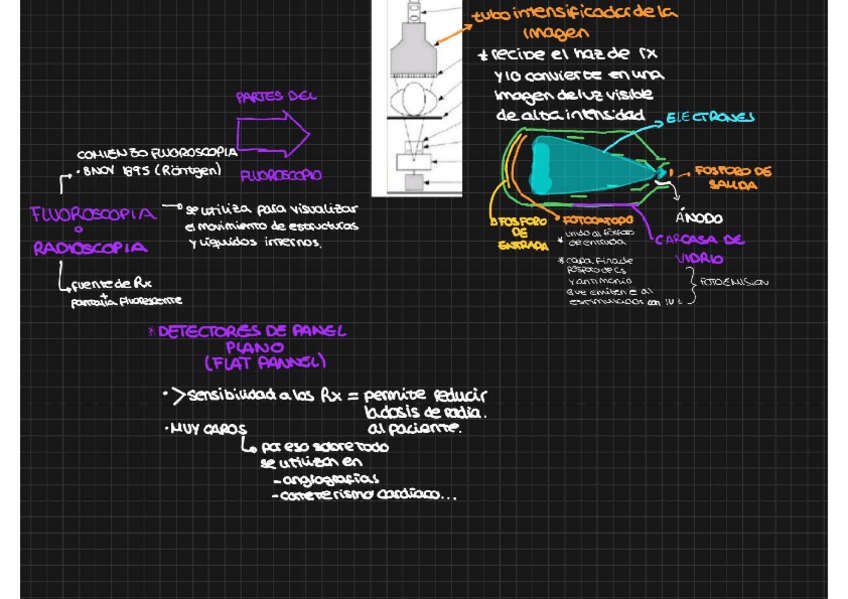 tubo intensificador de la
imagen
* recibe el haz de rx
y lo convierte en una
imagen de luz visible
de alta intensidad
ELECTRONES
FOSFORO DE
SALIDA
ÁNODO
FOSFORO
DE
ENTRADA
FOTOCATODO
* unido al fósforo
de entrada
* capa fina de
fósforo de Cs
y antimonio
que emiten e al
estimularlos con luz
FOTOEMISION
CARCASA DE
VIDRIO
PARTES DEL
FLUOROSCOPIO
COMIENZO FLUOROSCOPIA
· 8 NOV 1895 (Röntgen)
FLUOROSCOPIA
o
RADIOSCOPIA
se utiliza para visualizar
el movimiento de estructuras
y líquidos internos.
fuente de Rx
+
pantalla fluorescente
* DETECTORES DE PANEL
PLANO
(FLAT PANNEL)
· > sensibilidad a los Rx = permite reducir
la dosis de radia.
al paciente.
· MUY CAROS
por eso sobre todo
se utilizan en
- angiografías
- cateterismo cardiaco...